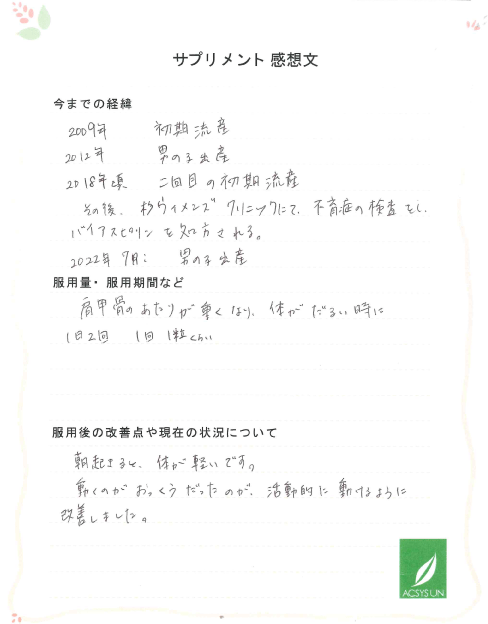 サプリメント 感想文
今までの経緯
2009年 初期流産
2012年 男の子出産
2018年頃 二回目の初期流産
その後、杉ウィメンズクリニックにて、不育症の検査をし、
バイアスピリンを処方される。
2022年 7月: 男の子出産
服用量・服用期間など
肩甲骨のあたりが重くなり、体がだるい時に
1日2回 1回1粒くらい
服用後の改善点や現在の状況について
朝起きると、体が軽いです。
動くのがおっくうだったのが、活動的に動けるように
改善しました。
ACSYSUN